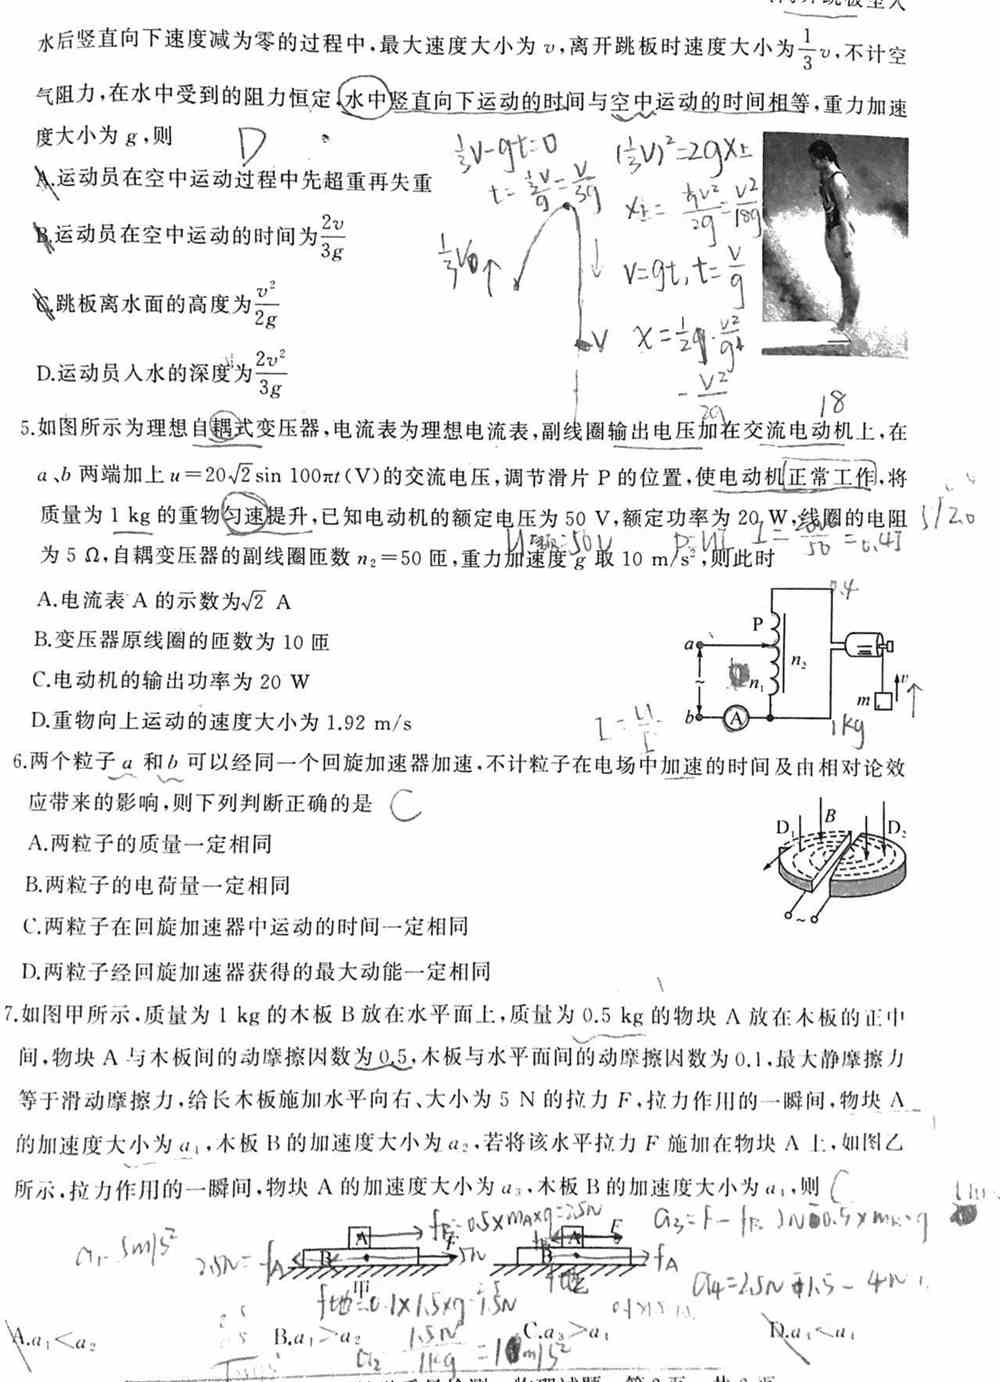 水后竖直向下速度减为零的过程中,最大速度大小为 v,离开跳板时速度大小为1/3 v,不计空
气阻力,在水中受到的阻力恒定,水中竖直向下运动的时间与空中运动的时间相等,重力加速
度大小为 g,则 D
A.运动员在空中运动过程中先超重再失重
B.运动员在空中运动的时间为2v/3g
C.跳板离水面的高度为v²/2g
D.运动员入水的深度为2v²/3g
1/3v-gt=0
t=1/3v/g=v/3g
(1/3v)²=2gx上
x上=1/9v²/2g=v²/18g
1/3v₀↑
v=gt,t=v/g
v
x=1/2g·v²/g²
v²/2g
18
5.如图所示为理想自耦式变压器,电流表为理想电流表,副线圈输出电压加在交流电动机上,在
a、b 两端加上 u=20√2sin 100πt(V)的交流电压,调节滑片 P 的位置,使电动机正常工作,将
质量为 1 kg 的重物匀速提升,已知电动机的额定电压为 50 V,额定功率为 20 W,线圈的电阻
为 5 Ω,自耦变压器的副线圈匝数 n₂=50 匝,重力加速度 g 取 10 m/s²,则此时
=50V P=UI I=20W/50=0.4
A.电流表 A 的示数为√2 A
B.变压器原线圈的匝数为 10 匝
C.电动机的输出功率为 20 W
D.重物向上运动的速度大小为 1.92 m/s
0.4
P
a
n₂
n₁
~
b
A
m
v
1kg
6.两个粒子 a 和 b 可以经同一个回旋加速器加速,不计粒子在电场中加速的时间及由相对论效
应带来的影响,则下列判断正确的是 C
A.两粒子的质量一定相同
B.两粒子的电荷量一定相同
C.两粒子在回旋加速器中运动的时间一定相同
D.两粒子经回旋加速器获得的最大动能一定相同
D₁ B D₂
~
7.如图甲所示,质量为 1 kg 的木板 B 放在水平面上,质量为 0.5 kg 的物块 A 放在木板的正中
间,物块 A 与木板间的动摩擦因数为 0.5,木板与水平面间的动摩擦因数为 0.1,最大静摩擦力
等于滑动摩擦力,给长木板施加水平向右、大小为 5 N 的拉力 F,拉力作用的一瞬间,物块 A
的加速度大小为 a₁,木板 B 的加速度大小为 a₂,若将该水平拉力 F 施加在物块 A 上,如图乙
所示,拉力作用的一瞬间,物块 A 的加速度大小为 a₃,木板 B 的加速度大小为 a₄,则 C
=0.5×mAxg=2.5N
a₁=5m/s²
2.5N=fA
A
B
F
5N
甲
A
B
F
fA
f地
f地=0.1×1.5×g=1.5N
A.a₁<a₂
B.a₁>a₂
C.a₃>a₁
D.a₄<a₁
1.5N/1kg